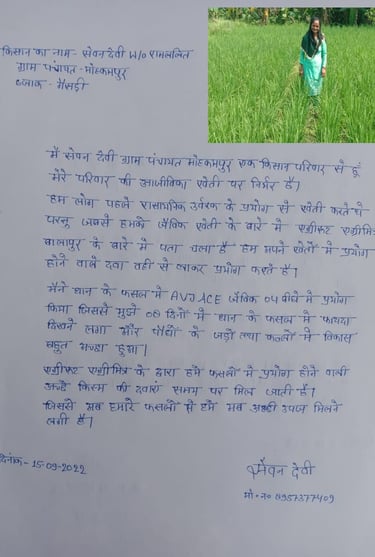 किसान का नाम- सेवन देवी W/o रामललित
ग्राम पंचायत - मोहकमपुर
ब्लाक - मैसड़ी
मैं सेवन देवी ग्राम पंचायत मोहकमपुर एक किसान परिवार से हूँ
मेरे परिवार की आजीविका खेती पर निर्भर है।
हम लोग पहले रासायनिक उर्वरक के प्रयोग से खेती करते थे
परन्तु जबसे हमको जैविक खेती के बारे में एग्रीफस्ट एग्रीमित्र
बालापुर के बारे में पता चला है हम अपने खेतों में प्रयोग
होने वाले दवा वहीं से लाकर प्रयोग करते है।
मैंने धान के फसल में AVJ ACE जैविक 04 बीघे में प्रयोग
किया जिससे मुझे 08 दिनों में धान के फसल में फायदा
दिखने लगा और पौधों के जड़ों तथा कल्लों में विकास
बहुत अच्छा हुआ।
एग्रीफस्ट एग्रीमित्र के द्वारा हमें फसलों में प्रयोग होने वाली
अच्छे किस्म की दवाएं समय पर मिल जाती है।
जिससे अब हमारे फसलों से हमें अब अच्छी उपज मिलने
लगी है।
दिनांक - 15-09-2022
सेवन देवी
मो० न० 8957377409